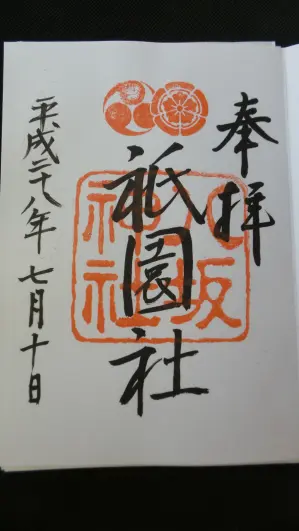 奉拝
八坂神社
祇園社
平成二十八年七月十日